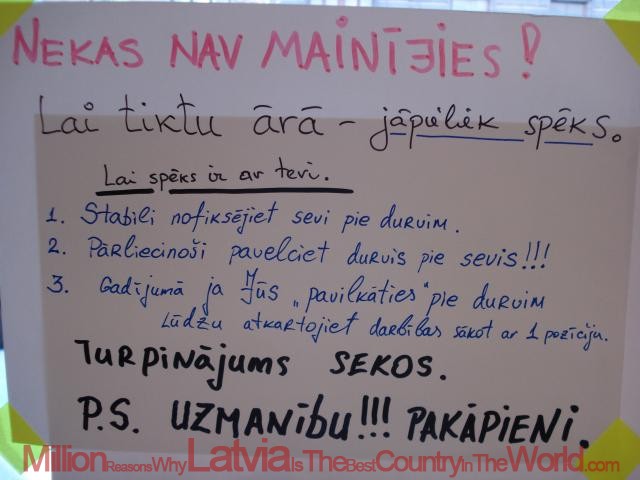 NEKAS NAV MAINĪJIES!
Lai tiktu ārā – jāpieliek spēks.
Lai spēks ir ar tevi.
1. Stabili nofiksējiet sevi pie durvīm.
2. Pārliecinoši pavelciet durvis pie sevis!!!
3. Gadījumā ja Jūs „pavilkāties" pie durvīm
Lūdzu atkārtojiet darbības sākot ar 1 pozīciju.
TURPINĀJUMS SEKOS.
P.S. UZMANĪBU!!! PAKĀPIENI.
Million Reasons Why Latvia Is The Best Country in The World.com